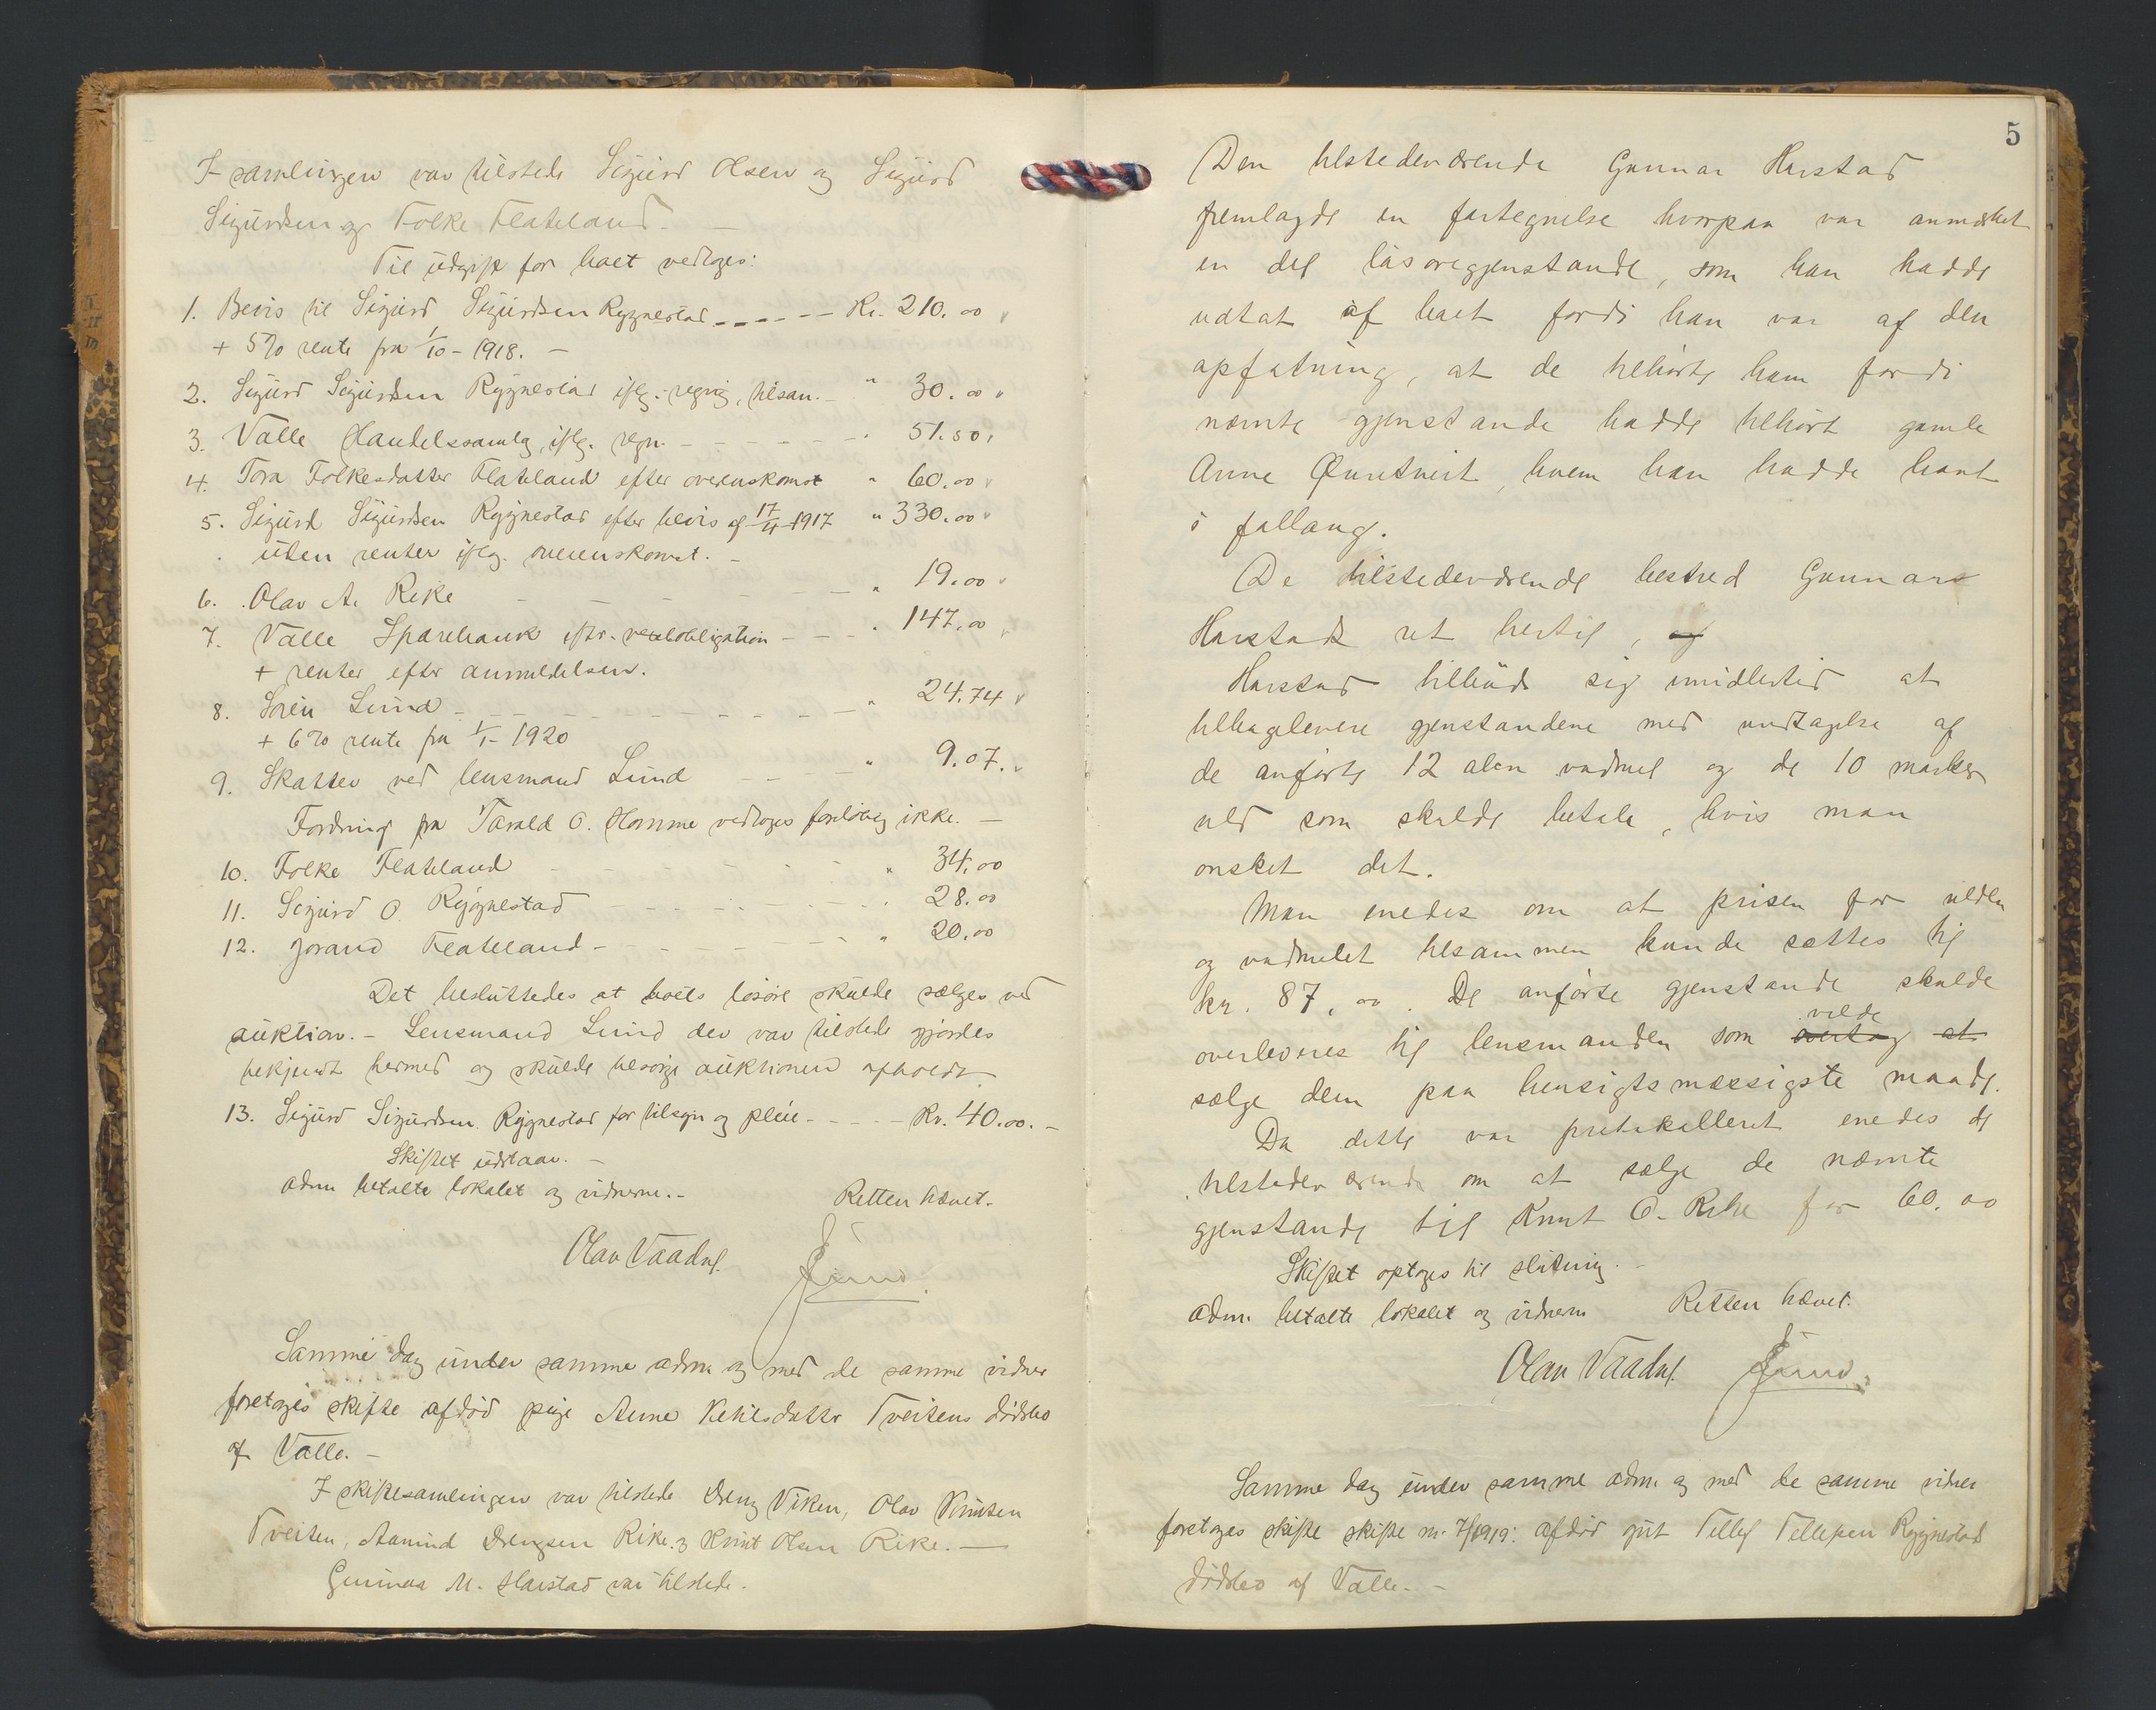 I samlingen var tilstede Sigurd Olsen og Sigurd
Sigurdsen og Folke Flateland. -
Til udgift for boet vedtoges:
1. Bevis til Sigurd Sigurdsen Rygnestad - - - - - Kr. 210.00
+ 5% rente fra 1/10 - 1918. -
2. Sigurd Sigurdsen Rygnestad iflg. regng, tilsam. - " 30.00
3. Valle Handelssamlag, iflg. regn. - - - - - " 51.50
4. Tora Folkesdatter Flateland efter overenskomst " 60.00
5. Sigurd Sigurdsen Rygnestad efter bevis af 17/4 1917 " 330.00
uten renter iflg. overenskomst. -
6. Olav A. Rike - - - - - " 19.00
7. Valle Sparebank iflg. vexelobligation - - - " 147.00
+ renter efter anmeldelsen.
8. Søren Lund - - - - - - " 24.74
+ 6% rente fra 1/1 - 1920
9. Skatter ved lensmand Lund - - - " 9.07.
Fordring fra Tarald O. Homme vedtoges foreløbig ikke. -
10. Folke Flateland - - - - - " 34.00
11. Sigurd O. Rygnestad - - - - - " 28.00
12. Jorand Flateland - - - - - " 20.00
Det besluttedes at boets løsøre skulde sælges ved
auktion. - Lensmand Lund der var tilstede gjordes
bekjendt hermed og skulde besørge auktionen afholdt.
13. Sigurd Sigurdsen Rygnestad for tilsyn og pleie - - - - Kr. 40.00. -
Skiftet udstaar. -
Adm betalte lokalet og vidnerne. -
Retten hævet.
Olav Vaadal. Lund.
Samme dag under samme adm og med de samme vidner
foretoges skifte afdød pige Anne Ketilsdatter Tveitens dødsbo
af Valle. -
I skiftesamlingen var tilstede Dreng Viken, Olav Knutsen
Tveiten, Aanund Drengsen Rike og Knut Olsen Rike. -
Gunnar M. Harstad var tilstede.
5
Den tilstedeværende Gunnar Harstad
fremlagde en fortegnelse hvorpaa var anmerket
en del løsøregjenstande, som han hadde
udtat af boet fordi han var af den
opfatning, at de tilhørte ham fordi
nævnte gjenstande hadde tilhørt gamle
Anne hvem han hadde havt
i
De tilstedeværende bestred Gunnar
Harstads ret hertil, og
Harstad tilbød sig imidlertid at
tilbagelevere gjenstandene med undtagelse af
de anførte 12 alen vadmel og de 10 marker
uld som skulde betale, hvis man
ønsket det.
Man enedes om at prisen for ulden
og vadmelet tilsammen kunde sættes til
kr. 87,00. De anførte gjenstande skulde
overleveres til lensmanden som overtog at vilde
sælge dem paa hensigtsmæssigste maade.
Da dette var protokolleret enedes de
tilstedeværende om at sælge de nævnte
gjenstande til Knut O. Rike for 60.00
Skiftet optoges til slutning. -
Adm. betalte lokalet og vidnerne Retten hævet.
Olav Vaadal. Lund.
Samme dag under samme adm. og med de samme vidner
foretoges skifte skifte nr. 7/1919: afdød gut Tellef Tellefsen Rygnestad
dødsbo af Valle. -